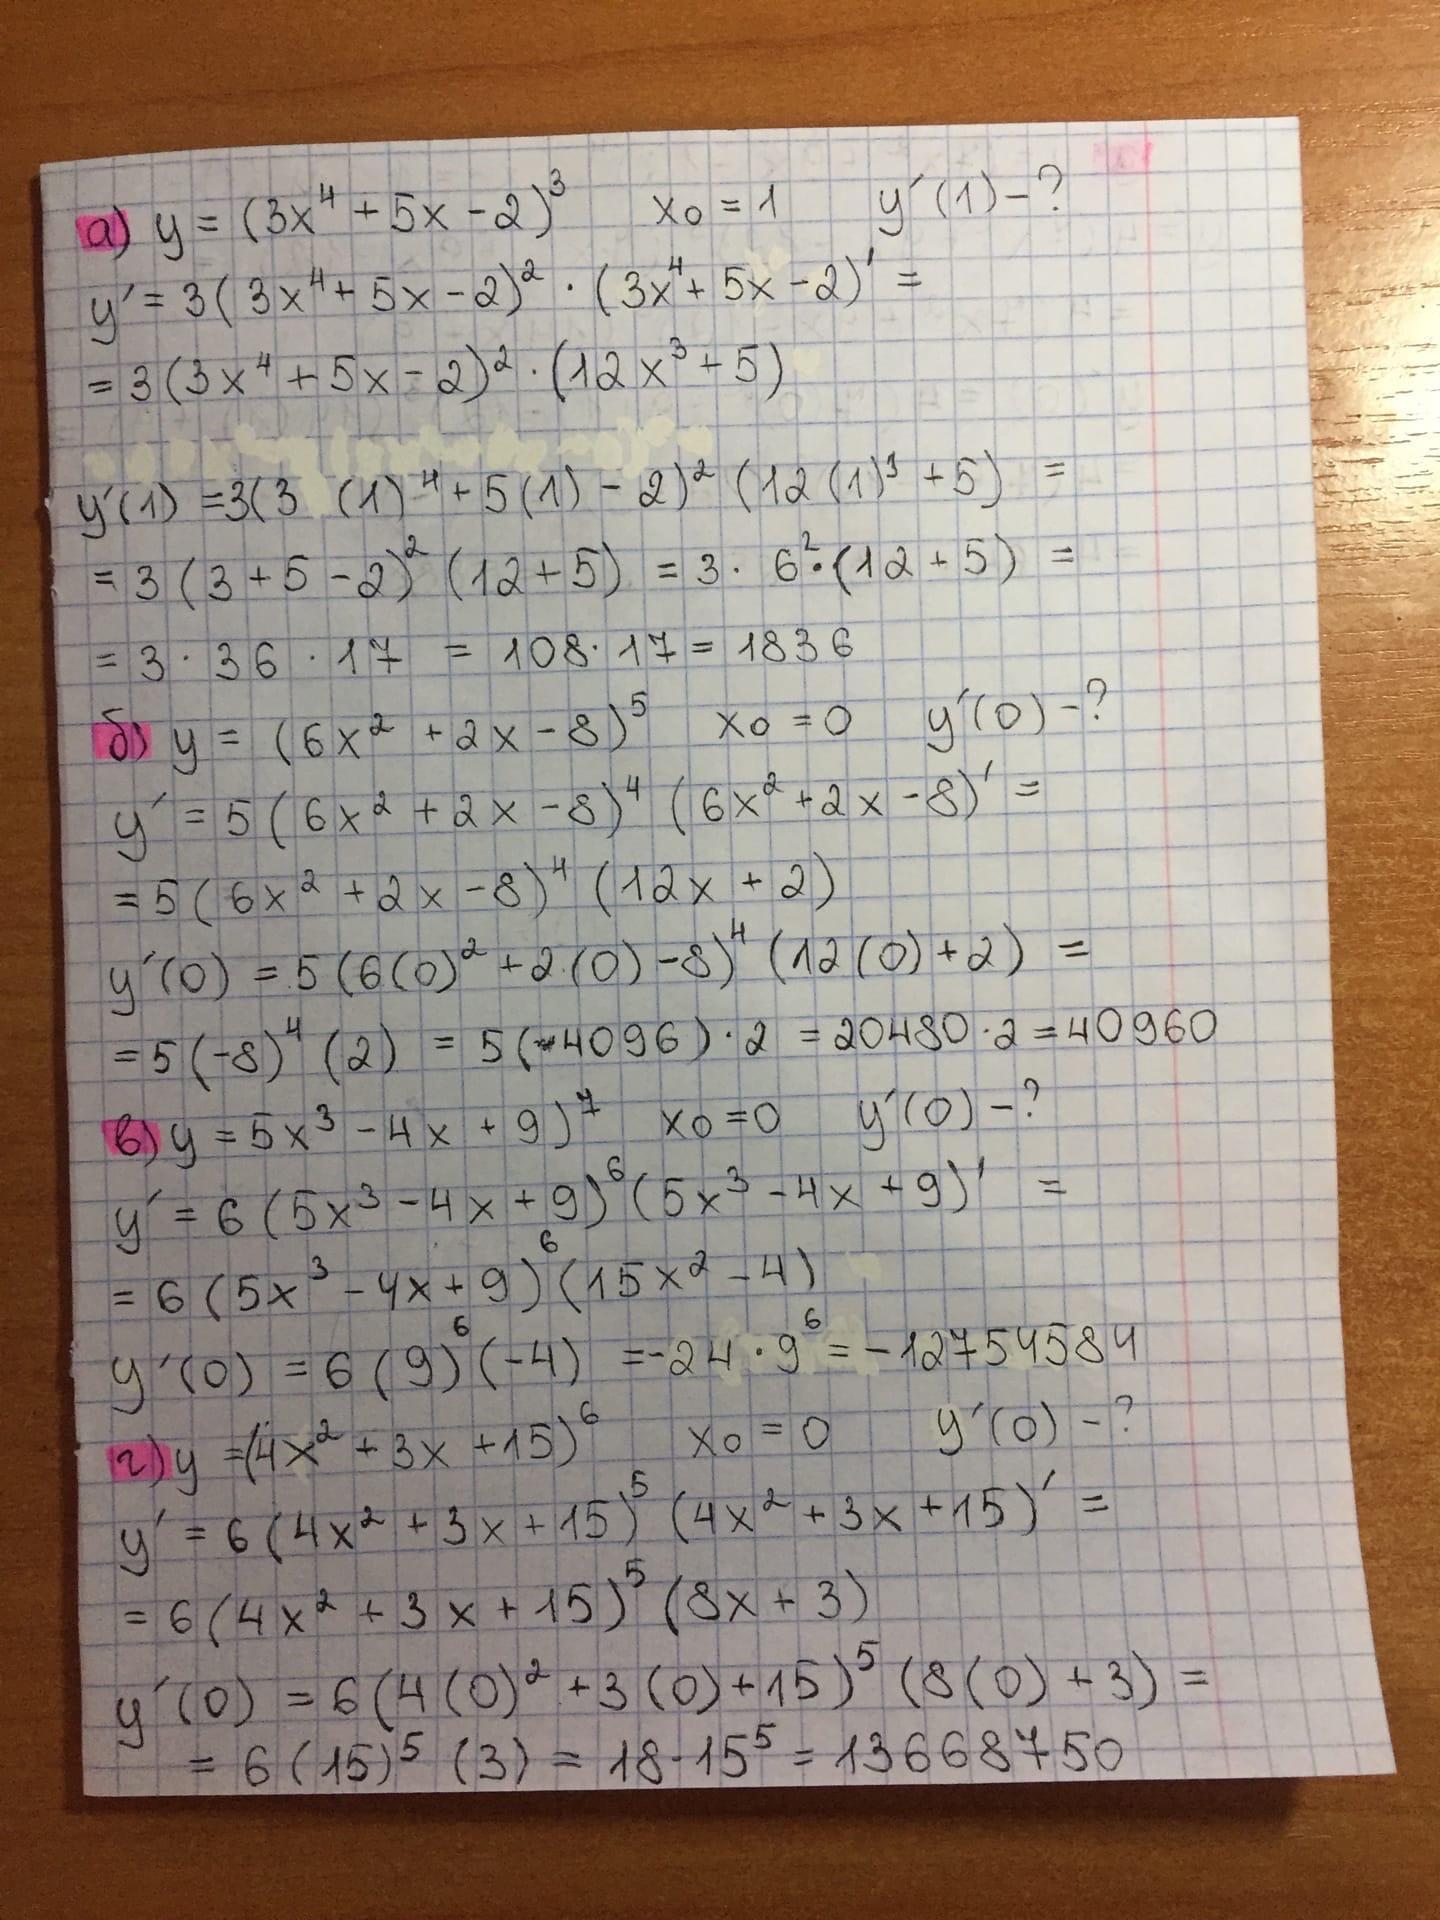 а) y = (3x⁴ + 5x - 2)³ x₀ = 1 y′(1) - ?
y′ = 3(3x⁴ + 5x - 2)² · (3x⁴ + 5x - 2)′ =
= 3(3x⁴ + 5x - 2)² · (12x³ + 5)
y′(1) = 3(3 (1)⁴ + 5(1) - 2)² (12(1)³ + 5) =
= 3(3 + 5 - 2)² (12 + 5) = 3 · 6² · (12 + 5) =
= 3 · 36 · 17 = 108 · 17 = 1836
б) y = (6x² + 2x - 8)⁵ x₀ = 0 y′(0) - ?
y′ = 5(6x² + 2x - 8)⁴ (6x² + 2x - 8)′ =
= 5(6x² + 2x - 8)⁴ (12x + 2)
y′(0) = 5(6(0)² + 2·(0) - 8)⁴ (12(0) + 2) =
= 5(-8)⁴ (2) = 5(-4096) · 2 = 20480 · 2 = 40960
в) y = 5x³ - 4x + 9)⁷ x₀ = 0 y′(0) - ?
y′ = 6(5x³ - 4x + 9)⁶ (5x³ - 4x + 9)′ =
= 6(5x³ - 4x + 9)⁶ (15x² - 4)
y′(0) = 6(9)⁶ (-4) = -24 · 9⁶ = -12754584
г) y = (4x² + 3x + 15)⁶ x₀ = 0 y′(0) - ?
y′ = 6(4x² + 3x + 15)⁵ (4x² + 3x + 15)′ =
= 6(4x² + 3x + 15)⁵ (8x + 3)
y′(0) = 6(4(0)² + 3(0) + 15)⁵ (8(0) + 3) =
= 6(15)⁵ (3) = 18 · 15⁵ = 13668750